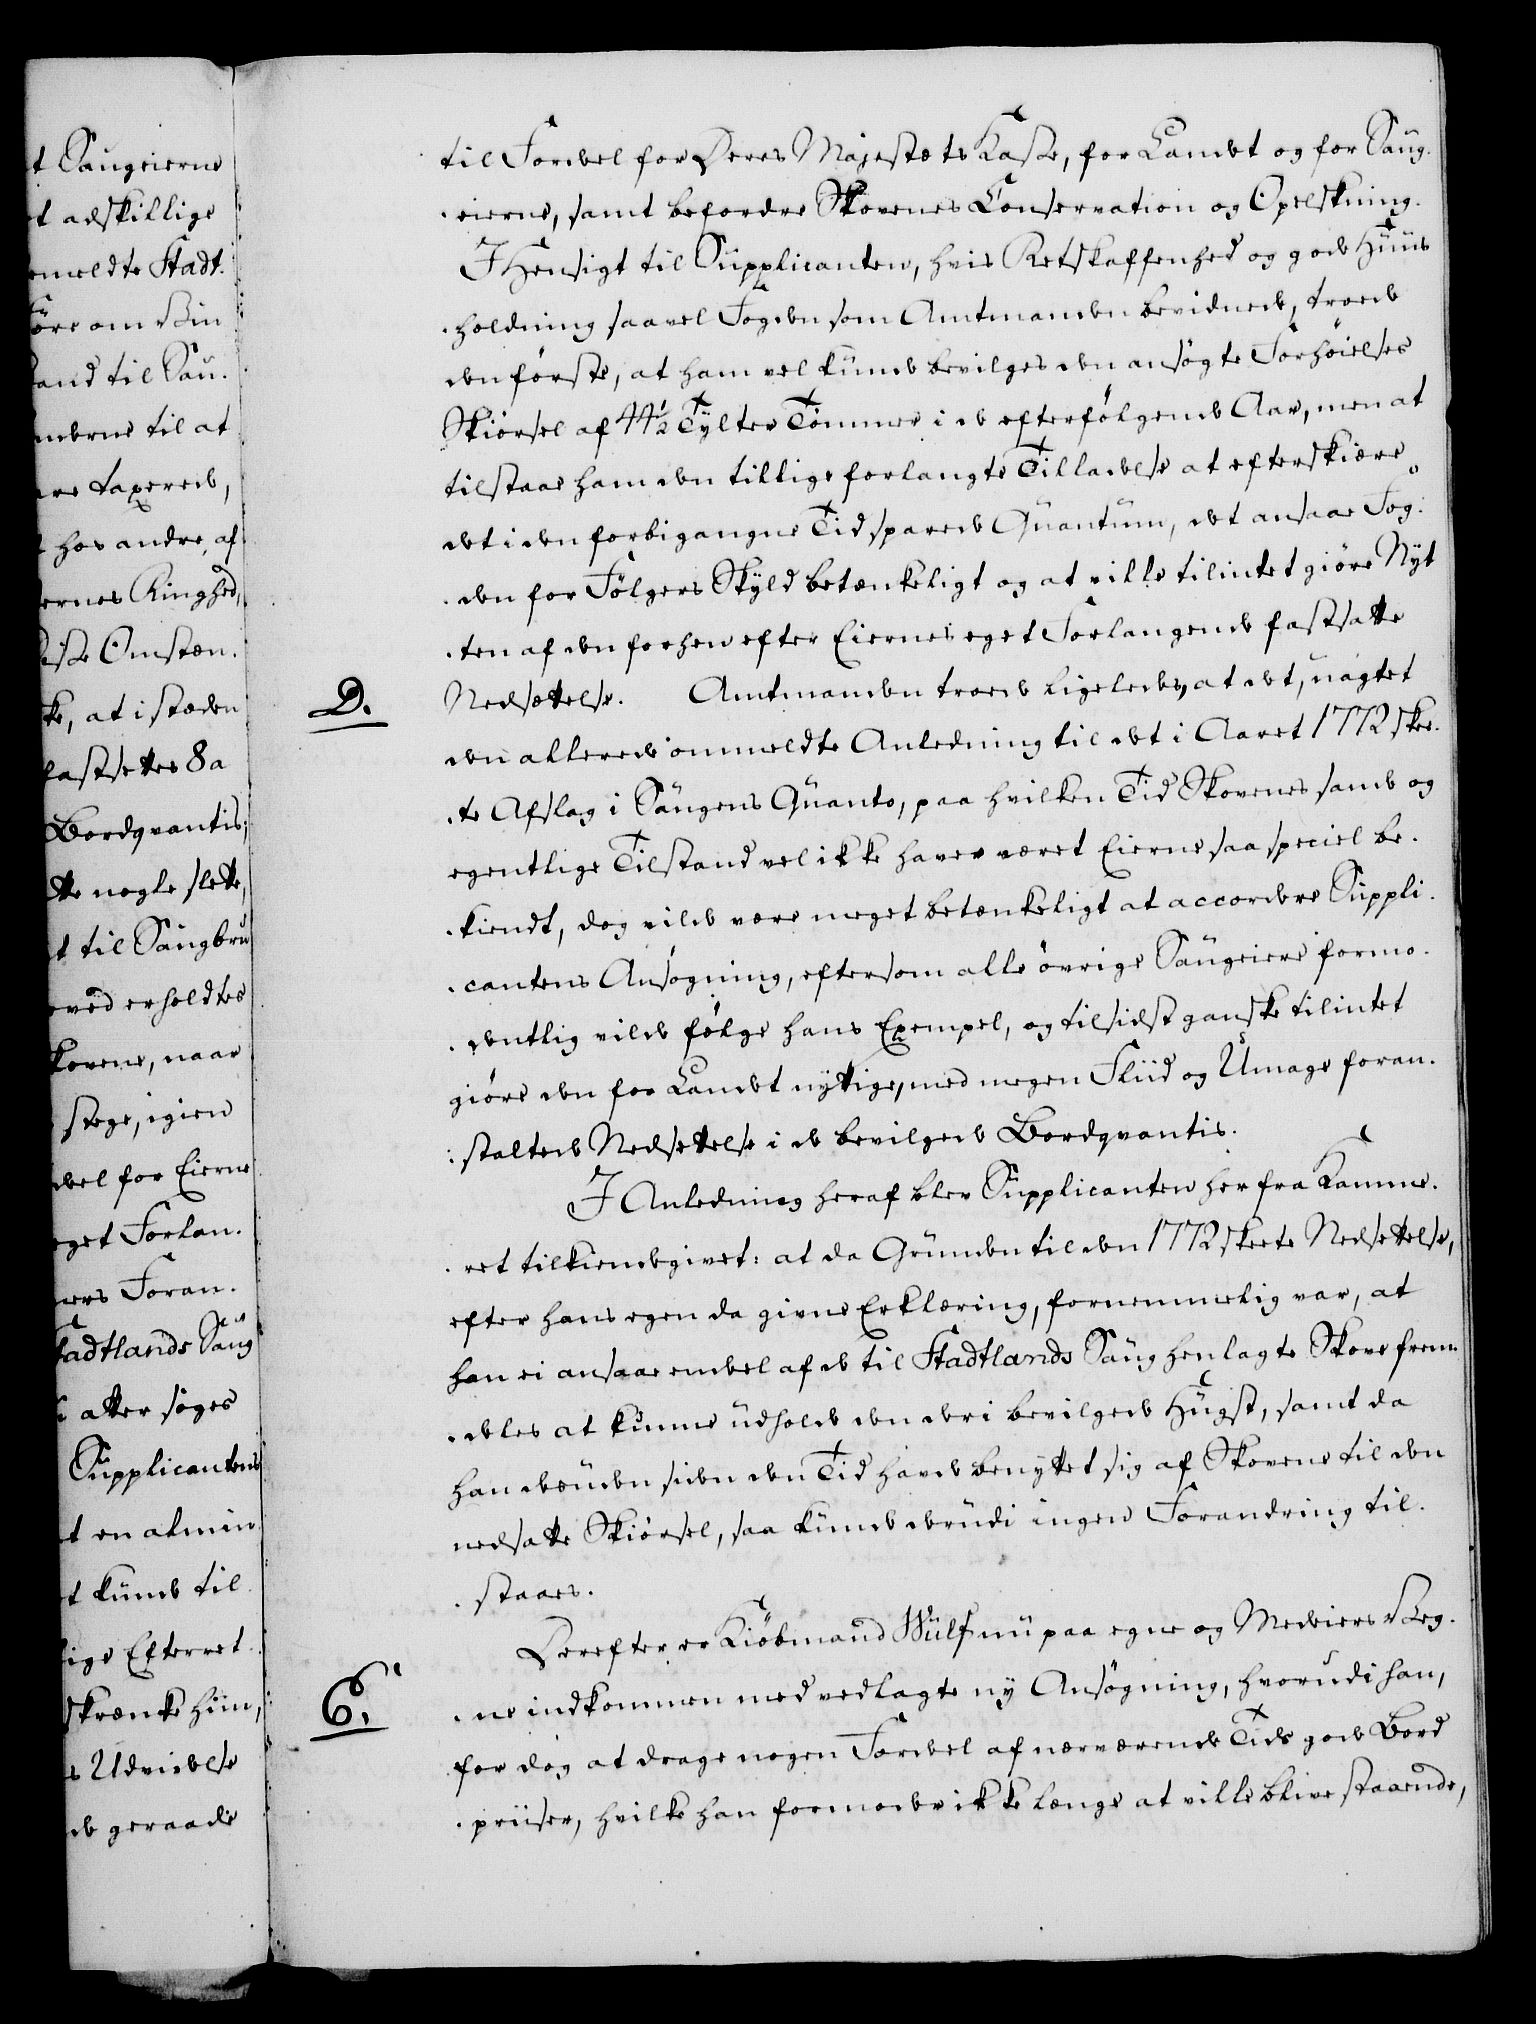 t Saugeierne
t adskillige
emeldte Stadt.
före om Bin
and til Sau.
nderne til at
re taxerede,
hos andre, af
ernes Ringhed,
isse Omstæn.
ke, at i stæden
fastsettes 8a
Bordqvantis;
dte nogle slette,
t til Saugbru
oved erholdtes
kovene, naar
stege, igien
del for Eierne
eget Forlan.
ers Foran.
tadtlands Saug
atter söges
Supplicantens
t en almin
t kunde til
ige Efterret
skrænke hiin,
s Udvidelse
de geraade
til Fordeel for Deres Majestæts Kasse, for Landet og for Saug.
.eierne, samt befordre Skovenes Conservation og Opelskning.
I Hensigt til Supplicanten, hvis Retskaffenhed og gode Huus
.holdning saavel Fogden som Amtmanden bevidnede, troede
den förste, at ham vel kunde bevilges den ansögte Forhöielses
Skiörsel af 44½ Tylter Tömmer i de efterfölgende Aar, men at
tilstaae ham den tillige forlangte Tilladelse at efterskiære
det i den forbigangne Tid sparede Quantum, det ansaae Fog.
.den for Fölgers Skyld betænkeligt og at ville tilintetgiöre Nyt
.ten af den forhen efter Eiernes eget Forlangende fastsatte
D. Nedsættelse. Amtmanden troede ligeledes, at det, uagtet
den allerede ommeldte Anledning til det i Aaret 1772 skee.
.te Afslag i Saugens Quanto, paa hvilken Tid Skovenes sande og
egentlige Tilstand vel ikke haver været Eierne saa speciel be.
.kiendt, dog vilde være meget betænkeligt at accordere Suppli.
.cantens Ansögning, eftersom alle övrige Saugeiere formo.
.dentlig vilde fölge hans Exempel, og tilsidst ganske tilintet
giöre den for Landet nyttige, med megen Fliid og Umage foran.
.staltede Nedsettelse i de bevilgede Bordqvantis.
I Anledning heraf blev Supplicanten her fra Kamme.
.ret tilkiendegivet: at da Grunden til den 1772 skeete Nedsettelse,
efter hans egen da givne Erklæring, fornemmelig var, at
han ei ansaae endeel af de til Stadtlands Saug henlagte Skove frem
.deles at kunne udholde den deri bevilgede Hugst, samt da
han desuden siden den Tid havde benyttet sig af Skovene til den
nedsatte Skiörsel, saa kunde derudi ingen Forandring til.
.staaes.
Derefter er Kiöbmand Wulf nu paa egne og Medeieres Veg.
6. .ne indkommen med vedlagte ny Ansögning, hvorudi han,
for dog at drage nogen Fordeel af nærværende Tids gode Bord
.priiser, hvilke han formoder ikke længe at ville blive staaende,